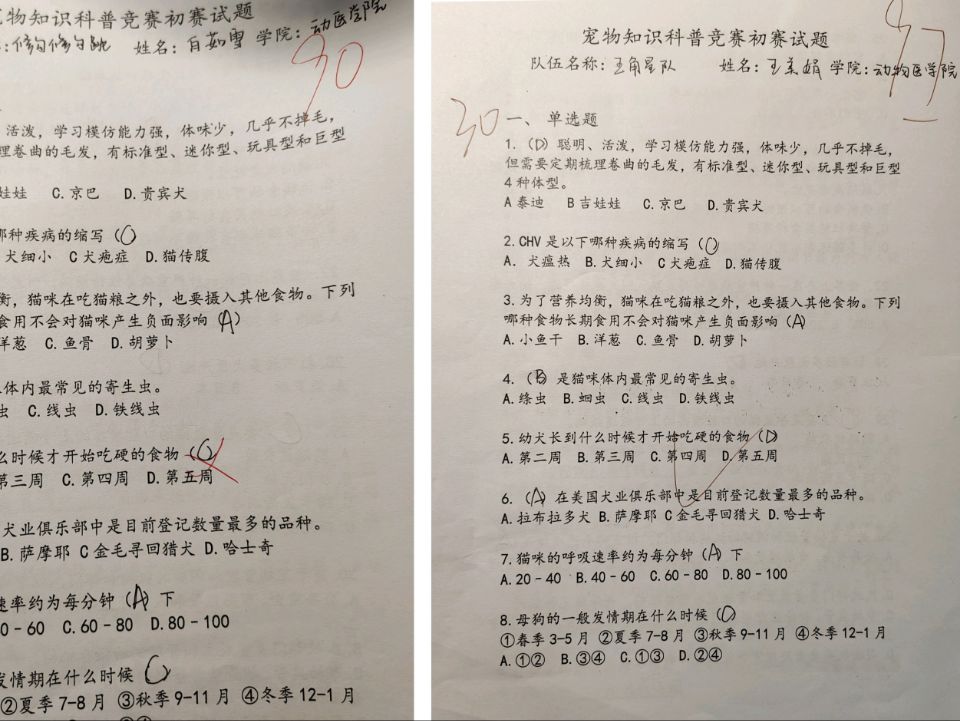 宠物知识科普竞赛初赛试题
修勾修勾跳 姓名：白茹雪 学院：动医学院
90
活泼，学习模仿能力强，体味少，几乎不掉毛，
理卷曲的毛发，有标准型、迷你型、玩具型和巨型
娃娃 C.京巴 D.贵宾犬
那种疾病的缩写（C）
犬细小 C 犬疱症 D.猫传腹
衡，猫咪在吃猫粮之外，也要摄入其他食物。下列
食用不会对猫咪产生负面影响（A）
洋葱 C.鱼骨 D.胡萝卜
体内最常见的寄生虫。
虫 C.线虫 D.铁线虫
么时候才开始吃硬的食物（C）
第三周 C.第四周 D.第五周
犬业俱乐部中是目前登记数量最多的品种。
B.萨摩耶 C 金毛寻回猎犬 D.哈士奇
速率约为每分钟（A）下
0－60 C.60－80 D.80－100
发情期在什么时候 C
②夏季 7-8 月 ③秋季 9-11 月 ④冬季 12-1 月
宠物知识科普竞赛初赛试题
队伍名称：五角星队 姓名：王美娟 学院：动物医学院
97
30
一、 单选题
1.（D）聪明、活泼，学习模仿能力强，体味少，几乎不掉毛，
但需要定期梳理卷曲的毛发，有标准型、迷你型、玩具型和巨型
4 种体型。
A 泰迪 B 吉娃娃 C.京巴 D.贵宾犬
2. CHV 是以下哪种疾病的缩写（C）
A. 犬瘟热 B.犬细小 C 犬疱症 D.猫传腹
3. 为了营养均衡，猫咪在吃猫粮之外，也要摄入其他食物。下列
哪种食物长期食用不会对猫咪产生负面影响（A）
A.小鱼干 B.洋葱 C.鱼骨 D.胡萝卜
4.（B）是猫咪体内最常见的寄生虫。
A.绦虫 B.蛔虫 C.线虫 D.铁线虫
5. 幼犬长到什么时候才开始吃硬的食物（D）
A.第二周 B.第三周 C.第四周 D.第五周
6.（A）在美国犬业俱乐部中是目前登记数量最多的品种。
A.拉布拉多犬 B.萨摩耶 C 金毛寻回猎犬 D.哈士奇
7. 猫咪的呼吸速率约为每分钟（A）下
A.20－40 B.40－60 C.60－80 D.80－100
8. 母狗的一般发情期在什么时候（C）
①春季 3-5 月 ②夏季 7-8 月 ③秋季 9-11 月 ④冬季 12-1 月
A.①② B.③④ C.①③ D.②④